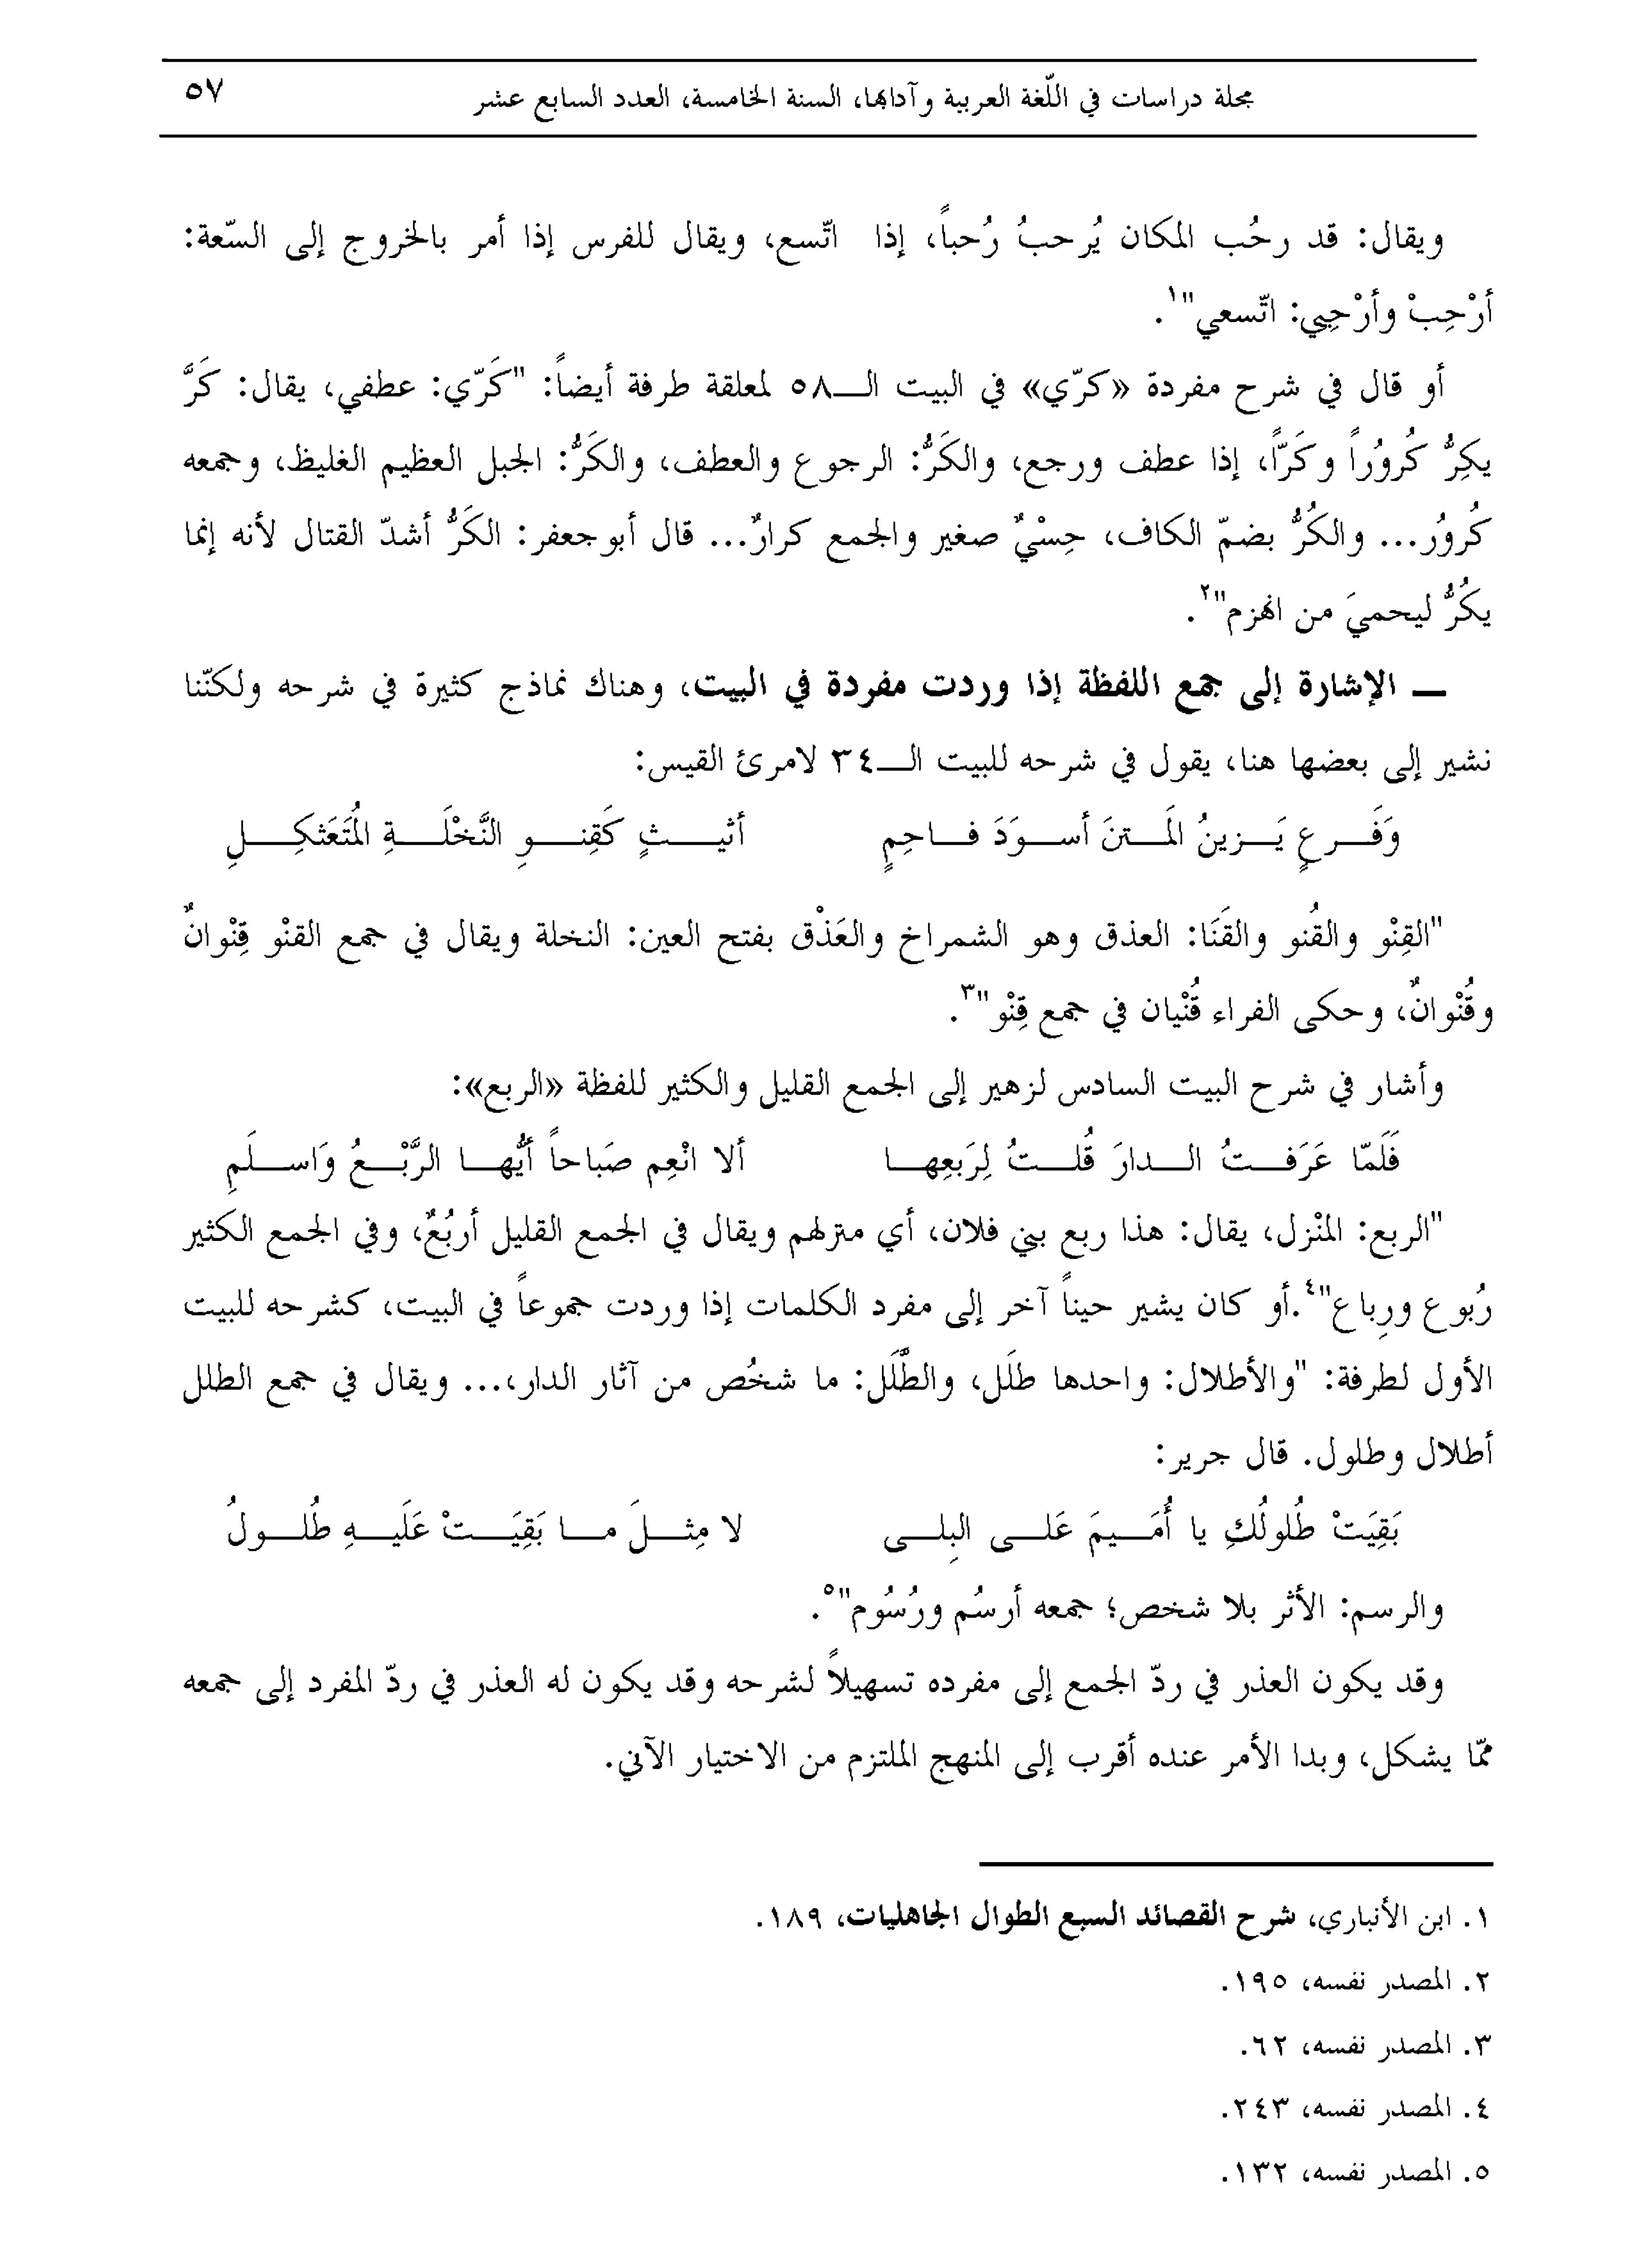 مجلة دراسات في اللّغة العربية وآدابها، السنة الخامسة، العدد السابع عشر ٥٧
ويقال: قد رحُب المكان يُرحبُ رُحباً، إذا اتّسع، ويقال للفرس إذا أمر بالخروج إلى السّعة:
أرْحِبْ وأرْحِبِي: اتّسعي"١.
أو قال في شرح مفردة «كرّي» في البيت الـ٥٨ لمعلقة طرفة أيضاً: "كَرّي: عطفي، يقال: كَرَّ
يكِرُّ كُرورُاً وكَرّاً، إذا عطف ورجع، والكَرُّ: الرجوع والعطف، والكَرُّ: الجبل العظيم الغليظ، وجمعه
كُرورُ... والكُرُّ بضمّ الكاف، حِسْيٌ صغير والجمع كرارٌ... قال أبوجعفر: الكَرُّ أشدّ القتال لأنه إنما
يكُرُّ ليحميَ من انهزم"٢.
ـ الإشارة إلى جمع اللفظة إذا وردت مفردة في البيت، وهناك نماذج كثيرة في شرحه ولكنّنا
نشير إلى بعضها هنا، يقول في شرحه للبيت الـ٣٤ لامرئ القيس:
وَفَرعٍ يَزينُ المَتنَ أسوَدَ فاحِمٍ أثيثٍ كَقِنوِ النَّخْلَةِ المُتَعَثكِلِ
"القِنْو والقُنو والقَنَا: العذق وهو الشمراخ والعَذْق بفتح العين: النخلة ويقال في جمع القنْو قِنْوانٌ
وقُنْوانٌ، وحكى الفراء قُنْيان في جمع قِنْو"٣.
وأشار في شرح البيت السادس لزهير إلى الجمع القليل والكثير للفظة «الربع»:
فَلَمّا عَرَفتُ الدارَ قُلتُ لِرَبعِها ألا انْعِم صَباحاً أيُّها الرَّبْعُ وَاسلَمِ
"الربع: المنْزل، يقال: هذا ربع بني فلان، أي منزلهم ويقال في الجمع القليل أربُعٌ، وفي الجمع الكثير
رُبوع ورِباع"٤.أو كان يشير حيناً آخر إلى مفرد الكلمات إذا وردت جموعاً في البيت، كشرحه للبيت
الأول لطرفة: "والأطلال: واحدها طلَل، والطَّلَل: ما شخُص من آثار الدار،... ويقال في جمع الطلل
أطلال وطلول. قال جرير:
بَقِيَتْ طُلولُكِ يا أُمَيمَ عَلى البِلى لا مِثلَ ما بَقِيَتْ عَلَيهِ طُلولُ
والرسم: الأثر بلا شخص؛ جمعه أرسُم ورُسُوم"٥.
وقد يكون العذر في ردّ الجمع إلى مفرده تسهيلاً لشرحه وقد يكون له العذر في ردّ المفرد إلى جمعه
ممّا يشكل، وبدا الأمر عنده أقرب إلى المنهج الملتزم من الاختيار الآني.
١. ابن الأنباري، شرح القصائد السبع الطوال الجاهليات، ١٨٩.
٢. المصدر نفسه، ١٩٥.
٣. المصدر نفسه، ٦٢.
٤. المصدر نفسه، ٢٤٣.
٥. المصدر نفسه، ١٣٢.